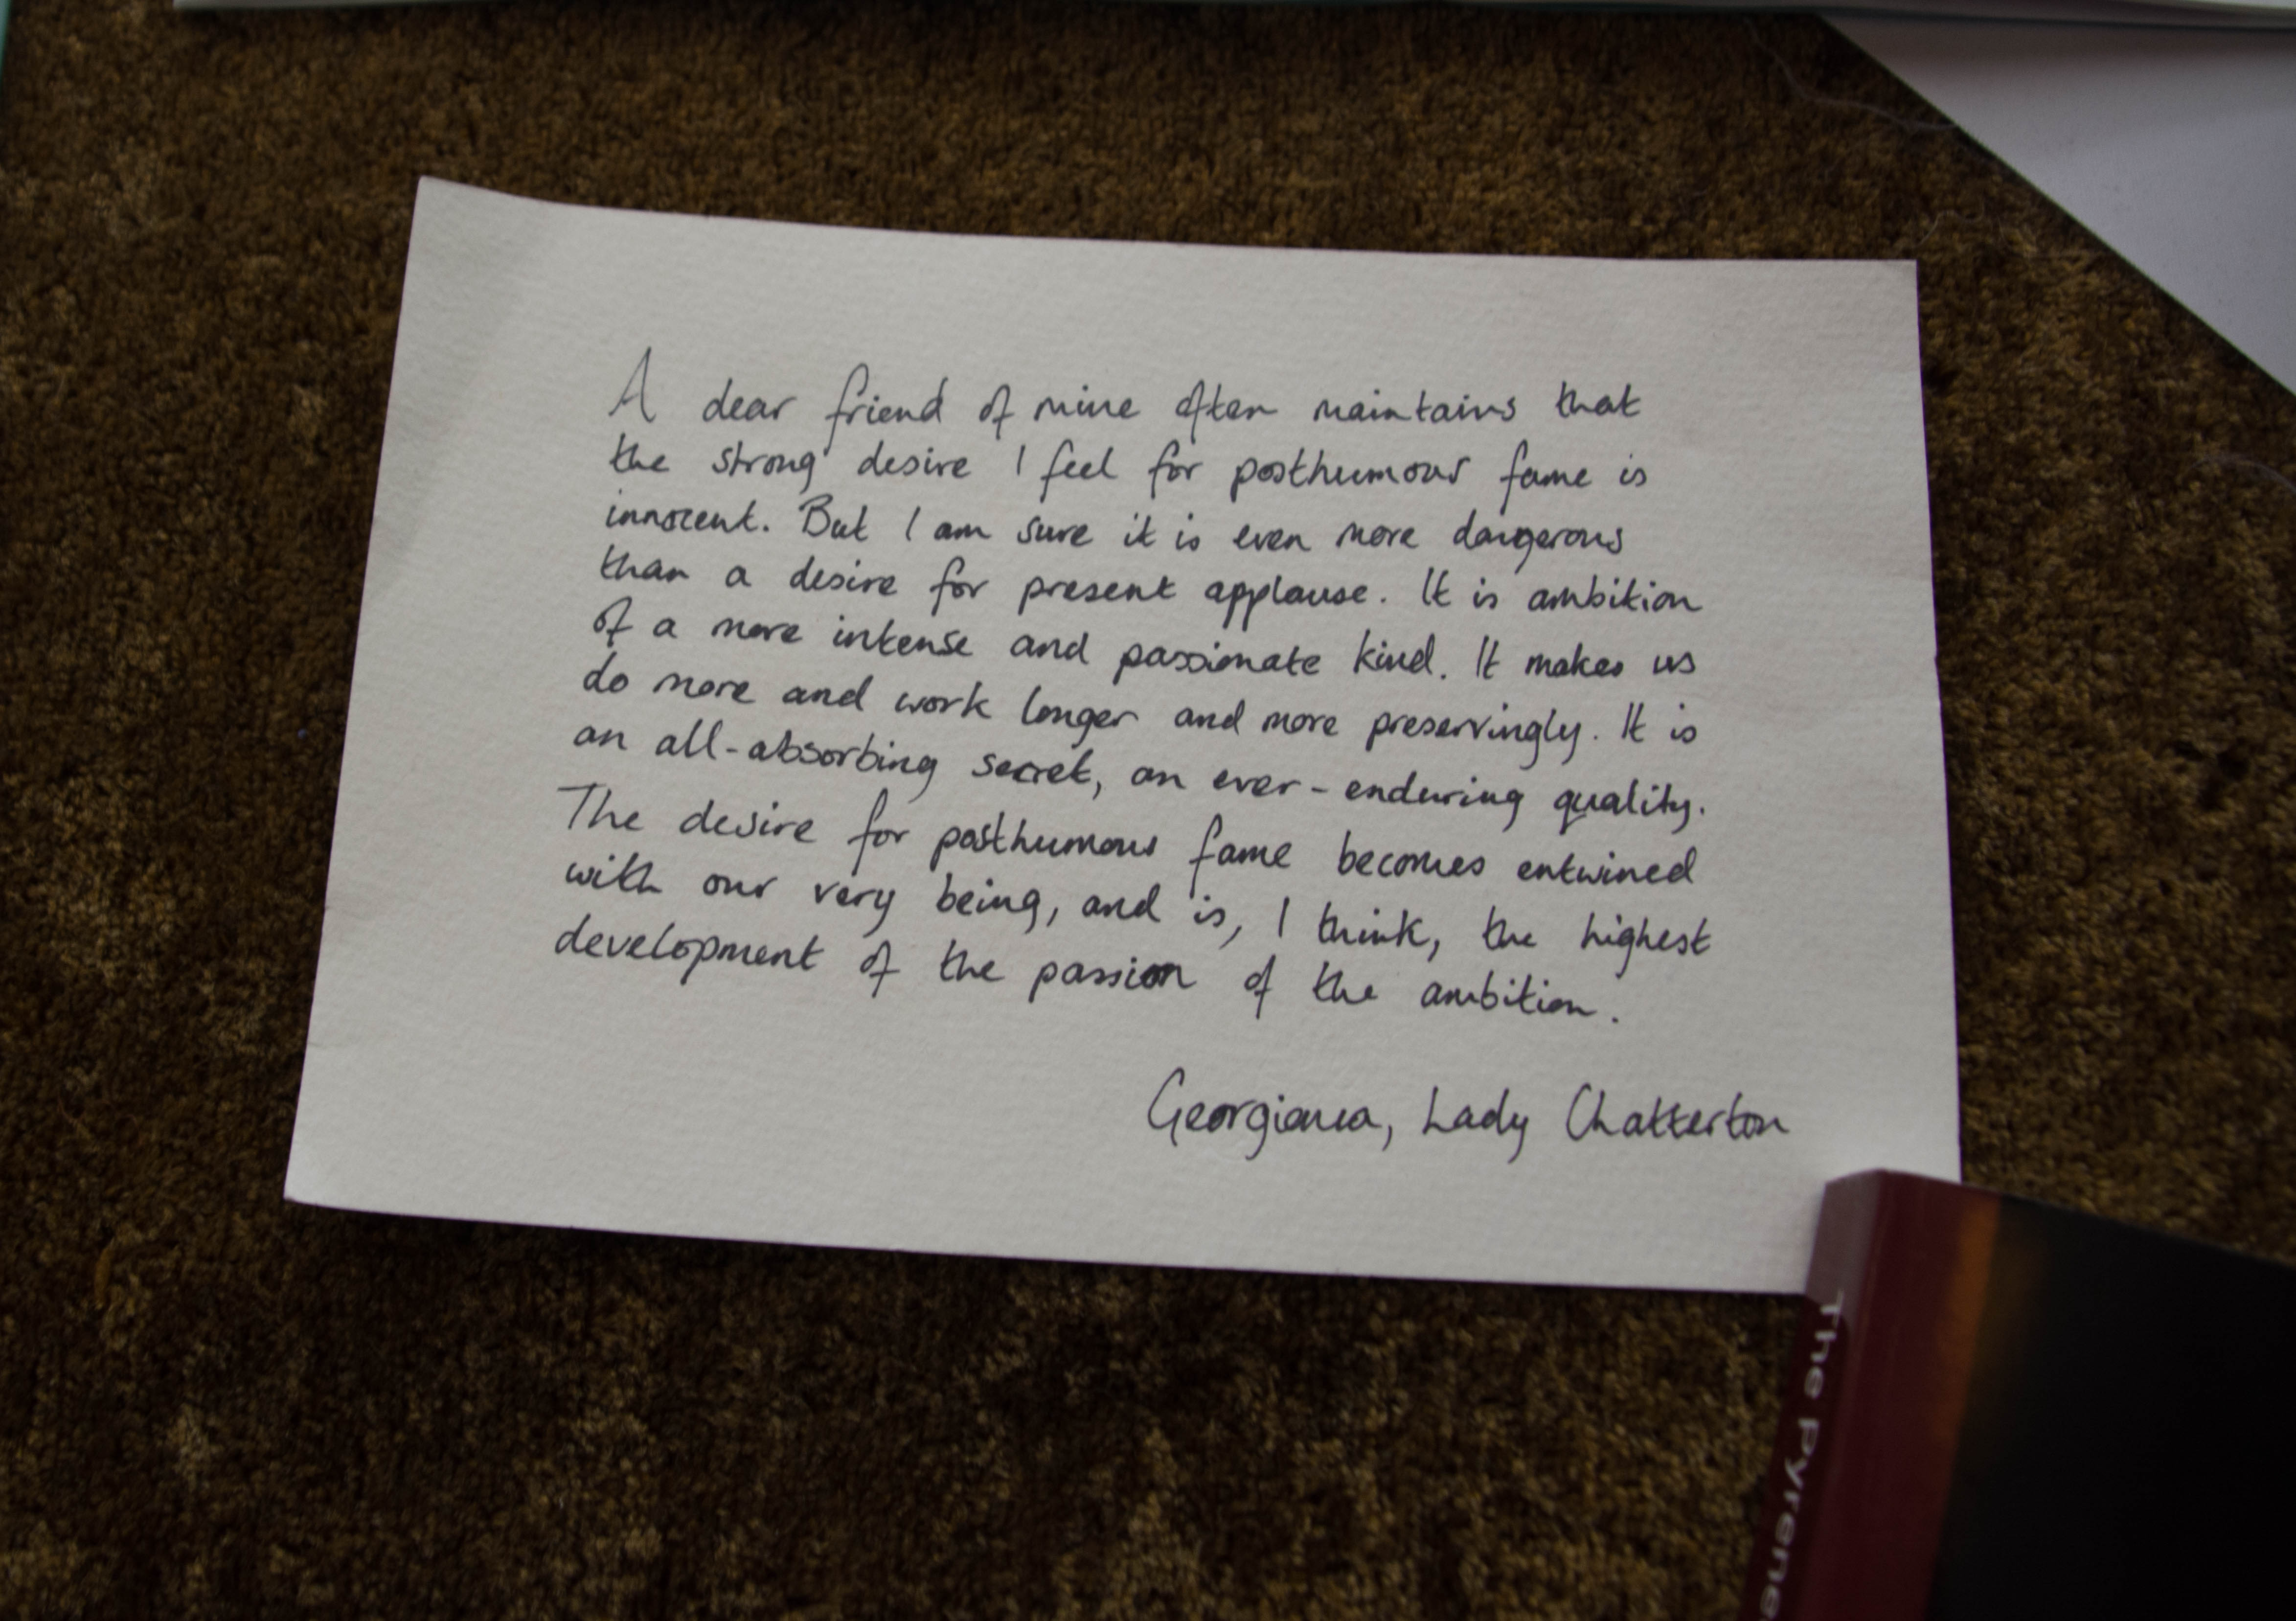 A dear friend of mine often maintains that
the strong desire I feel for posthumous fame is
innocent. But I am sure it is even more dangerous
than a desire for present applause. It is ambition
of a more intense and passionate kind. It makes us
do more and work longer and more preservingly. It is
an all-absorbing secret, an ever-enduring quality.
The desire for posthumous fame becomes entwined
with our very being, and is, I think, the highest
development of the passion of the ambition.
Georgiana, Lady Chatterton
The Pyrene